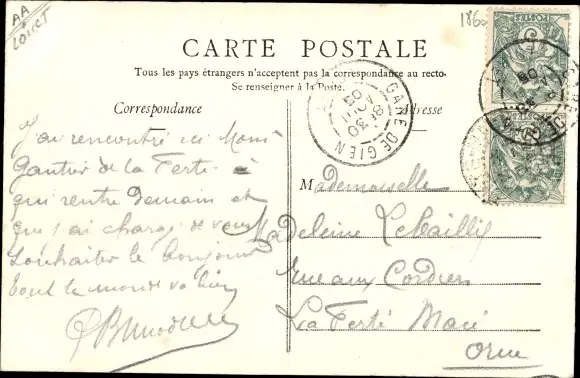 AA
LOIRET
1860
CARTE POSTALE
Tous les pays étrangers n'acceptent pas la correspondance au recto.
Se renseigner à la Poste.
Correspondance
Adresse
GARE DE GIEN
8E 30
AOUT
05
POSTES
J'ai rencontré ici Mons
Gautier de la Ferté
qui rentre demain et
que j'ai chargé de vous
souhaiter le bonjour
tout le monde va bien
Mademoiselle
Madeleine Lebailly
rue aux Cordiers
La Ferté Macé
Orne